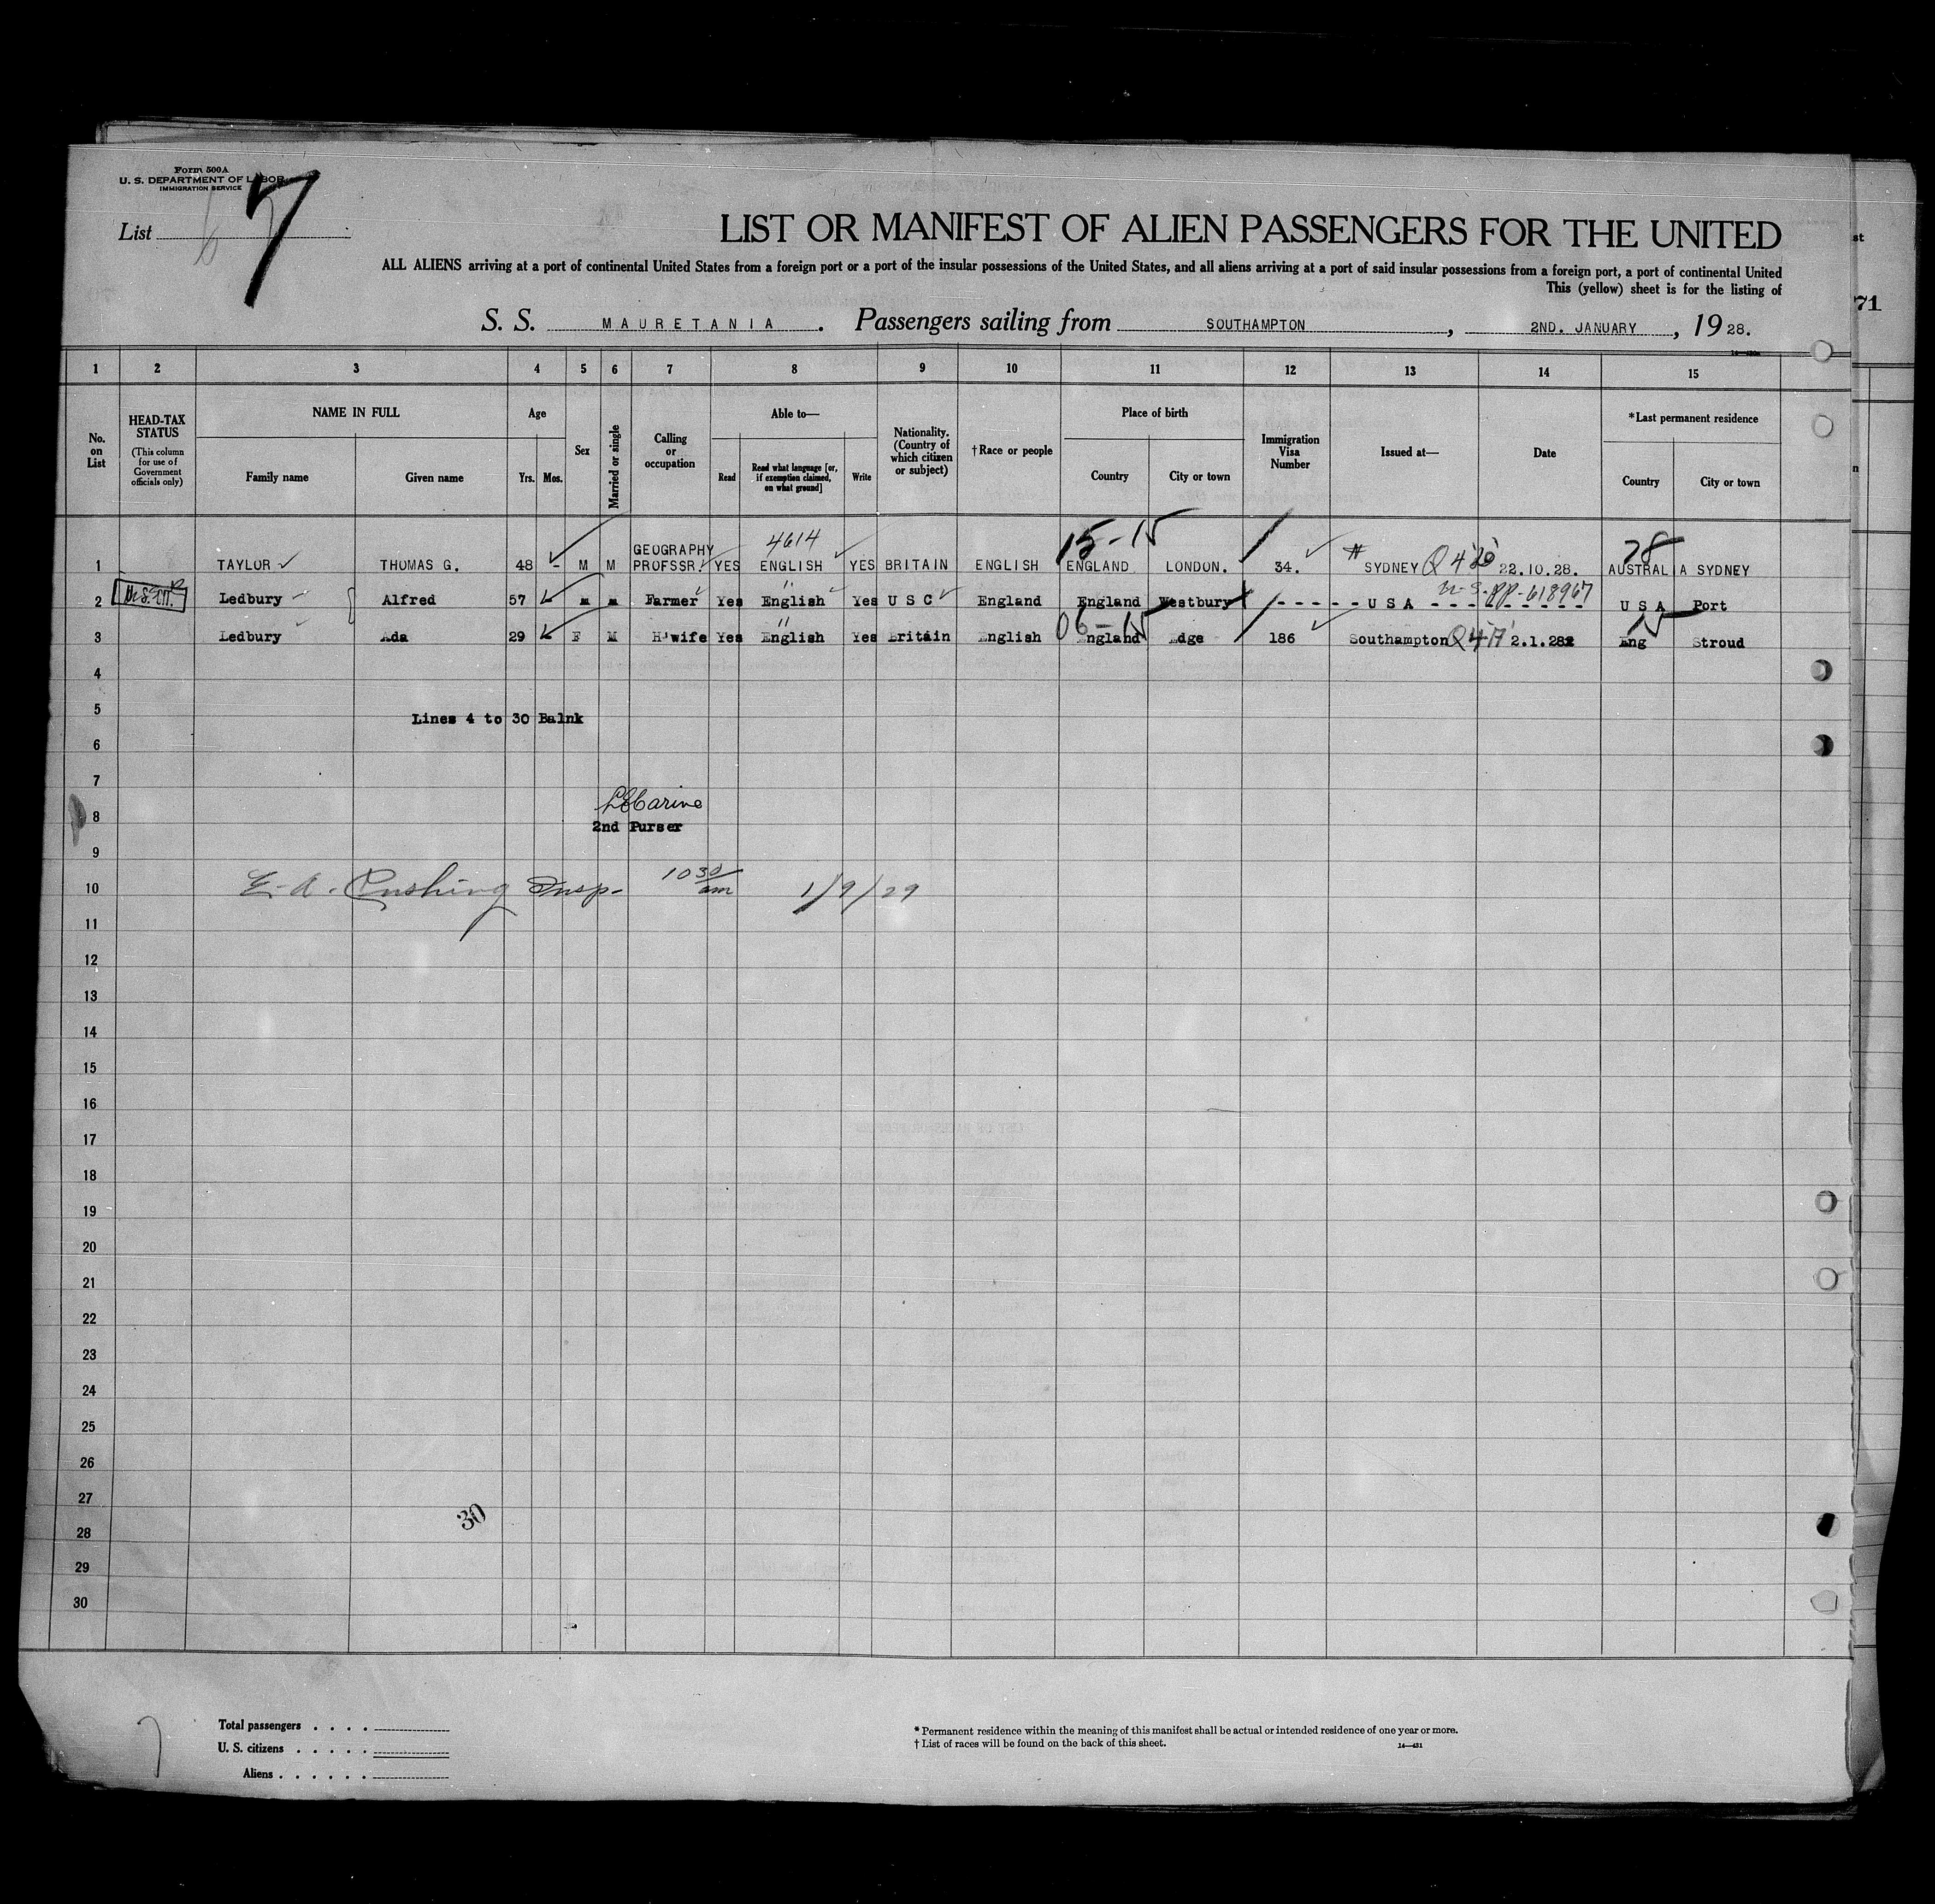 Form 500A
U. S. DEPARTMENT OF LABOR
IMMIGRATION SERVICE
List
7
LIST OR MANIFEST OF ALIEN PASSENGERS FOR THE UNITED
ALL ALIENS arriving at a port of continental United States from a foreign port or a port of the insular possessions of the United States, and all aliens arriving at a port of said insular possessions from a foreign port, a port of continental United
This (yellow) sheet is for the listing of
71
S. S. MAURETANIA. Passengers sailing from SOUTHAMPTON, 2ND. JANUARY, 1928.
1 2 3 4 5 6 7 8 9 10 11 12 13 14 15
No. on List
HEAD-TAX STATUS
(This column for use of Government officials only)
NAME IN FULL
Family name
Given name
Age
Yrs. Mos.
Sex
Married or single
Calling or occupation
Able to—
Read
Read what language [or, if exemption claimed, on what ground]
Write
Nationality. (Country of which citizen or subject)
†Race or people
Place of birth
Country
City or town
Immigration Visa Number
Issued at—
Date
*Last permanent residence
Country
City or town
4614 15-15 28
1 TAYLOR THOMAS G. 48 - M M GEOGRAPHY PROFSSR. YES ENGLISH YES BRITAIN ENGLISH ENGLAND LONDON. 34. SYDNEY 22.10.28. AUSTRALIA SYDNEY
2 Ledbury Alfred 57 - m m Farmer Yes English Yes U S C England England Westbury - - - - - U S A - - - - - - - - U S A Port
618967
06-15
3 Ledbury Ada 29 - F M H'wife Yes English Yes Britain English England Edge 186 Southampton 2.1.28 Eng Stroud
4
5 Lines 4 to 30 Balnk
6
7
8
2nd Purser
9
10 E. A. Cushing Insp- 10 30 am 1/9/29
11
12
13
14
15
16
17
18
19
20
21
22
23
24
25
26
27
30
28
29
30
Total passengers . . . .
U. S. citizens . . . . .
Aliens . . . . . .
7
* Permanent residence within the meaning of this manifest shall be actual or intended residence of one year or more.
† List of races will be found on the back of this sheet.
14—431